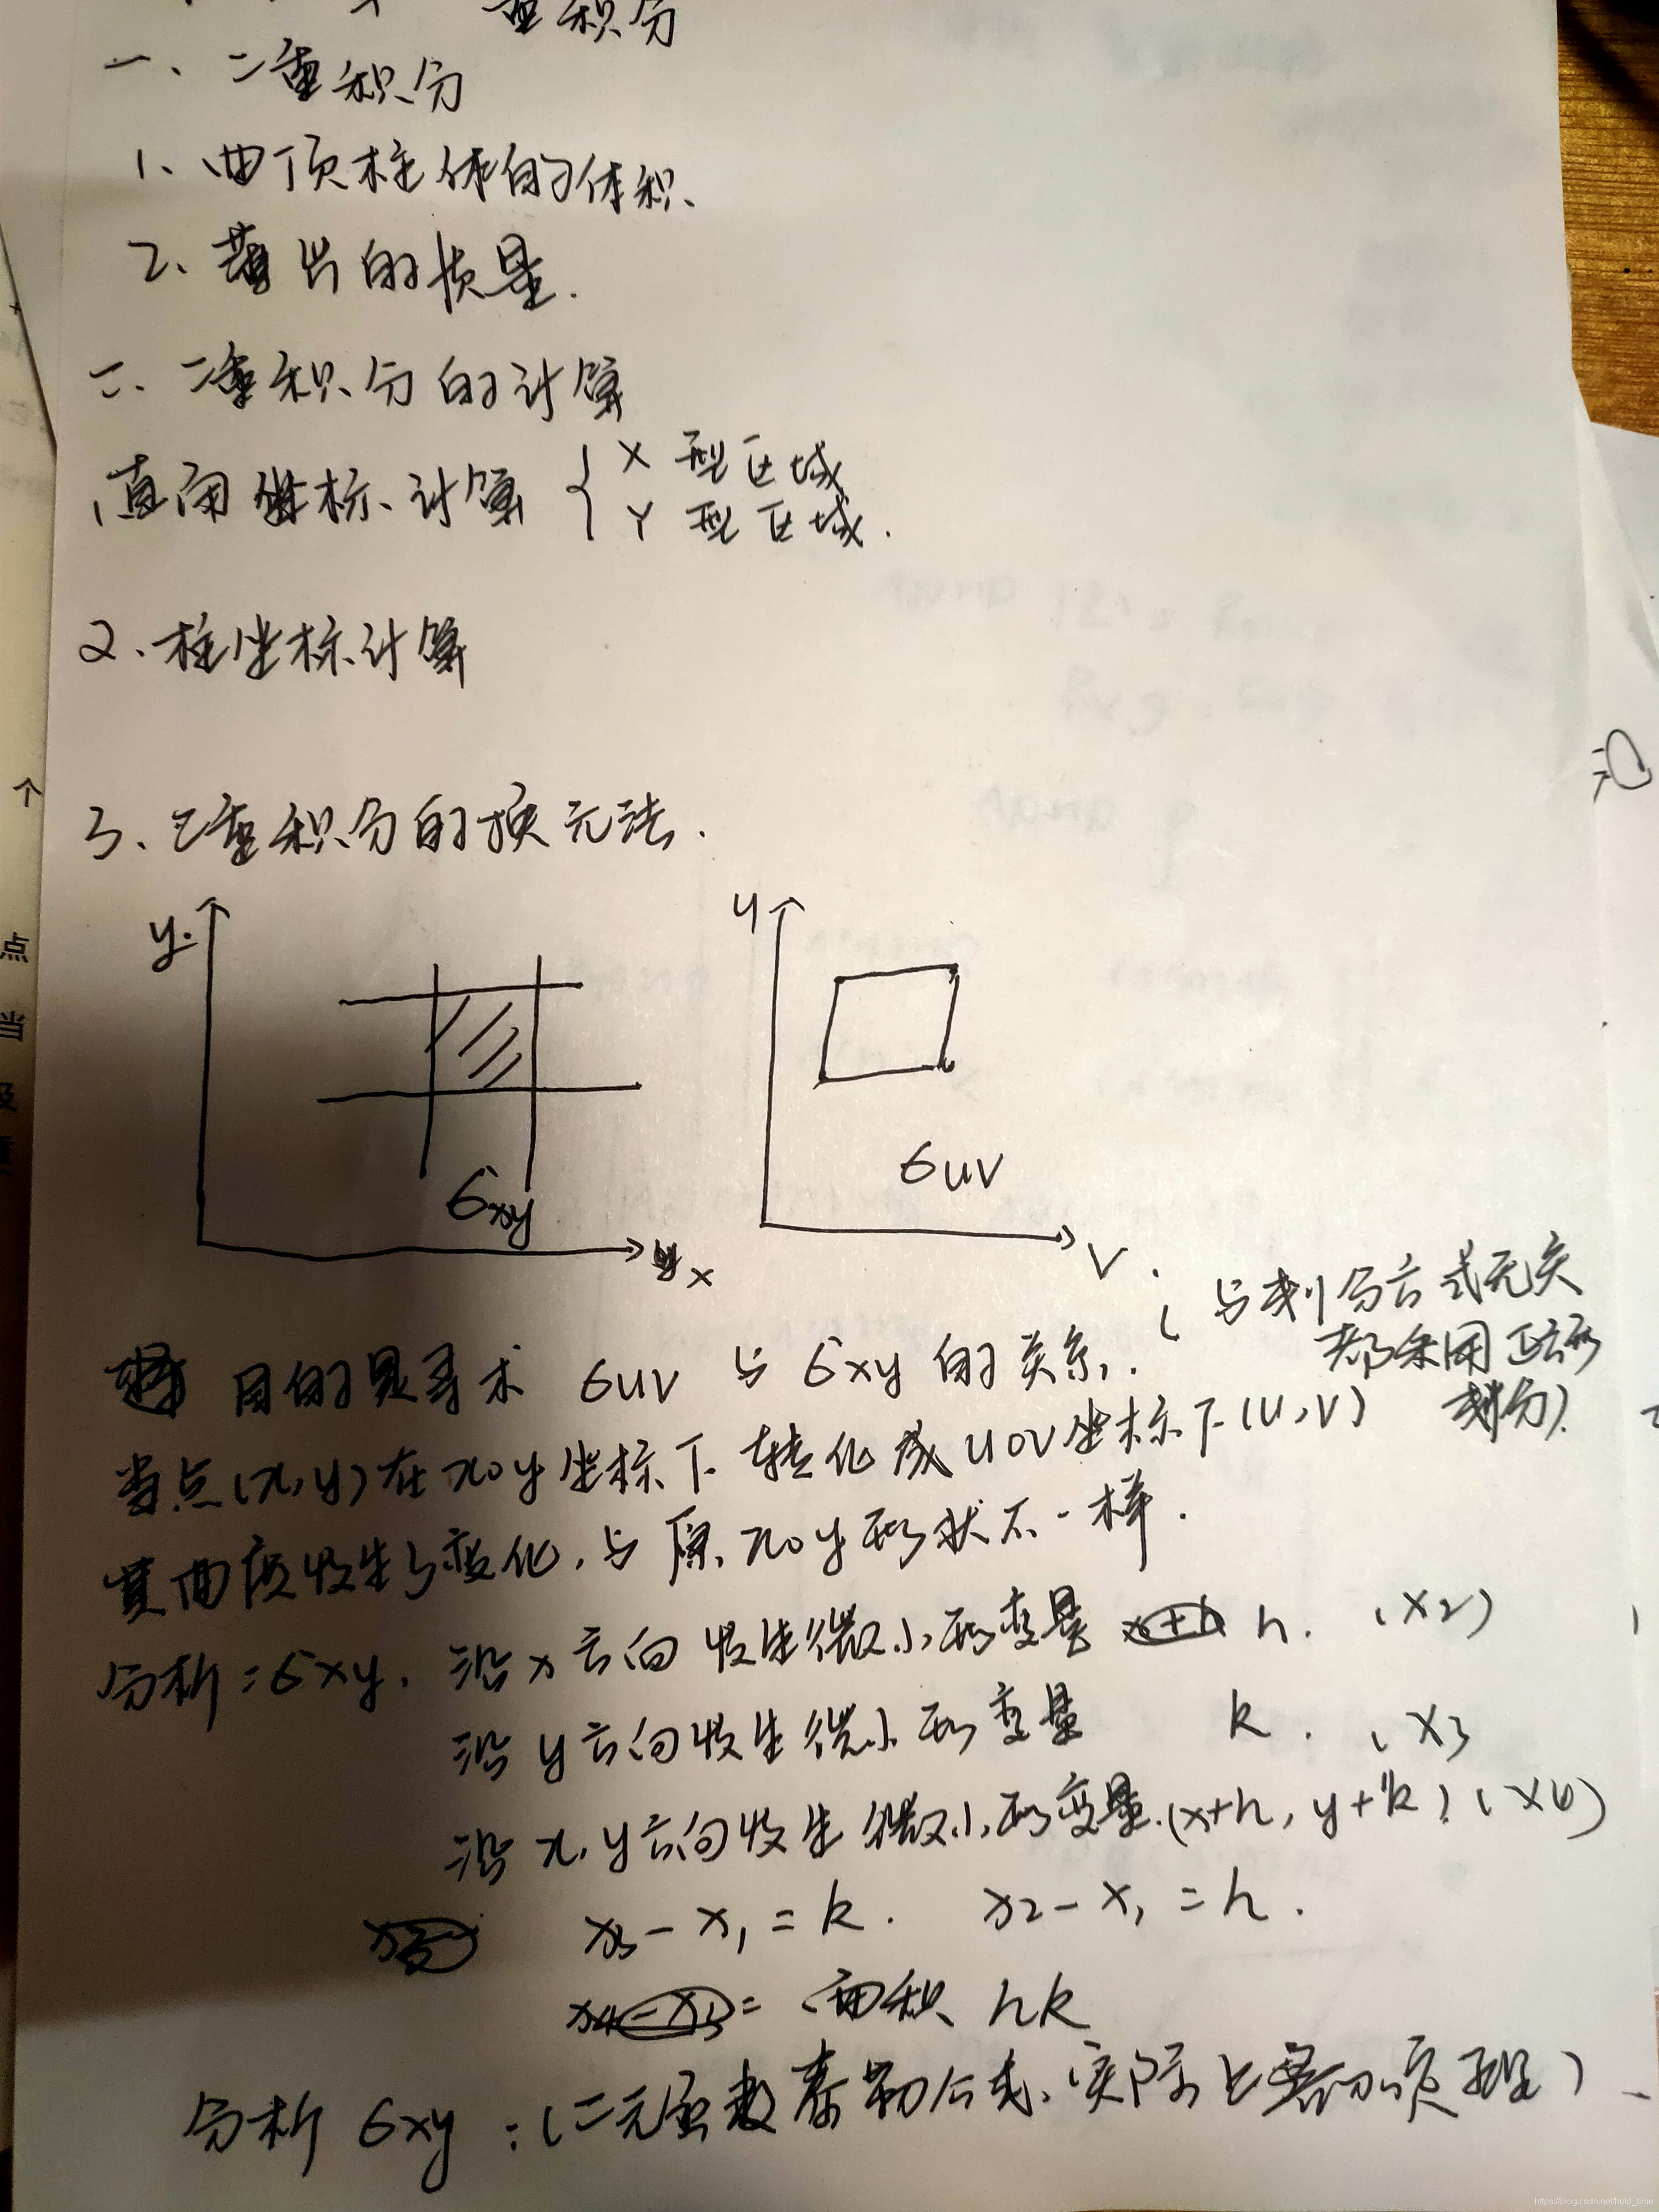 重积分
一、二重积分
1、曲顶柱体的体积、
2、薄片的质量.
二、二重积分的计算
直角坐标计算 { X 型区域
Y 型区域.
2、柱坐标计算
3、二重积分的换元法.
y
σxy
x
u
σuv
v
(与划分方式无关
都采用正方形
划分).
目的是寻求 σuv 与 σxy 的关系.
当点(x,y)在xoy坐标下转化成uov坐标下(u,v)
其曲顶发生了变化,与原xoy形状不一样.
分析=σxy. 沿x方向发生微小形变量 h. (x2)
沿y方向发生微小形变量 k. (x3
沿x,y方向发生微小形变量.(x+h, y+k) (x4)
x3-x1=k. x2-x1=h.
= 面积 hk
分析 σxy:(二元函数泰勒公式、实际上
个
点
当
及
https://blog.csdn.net/hold_time